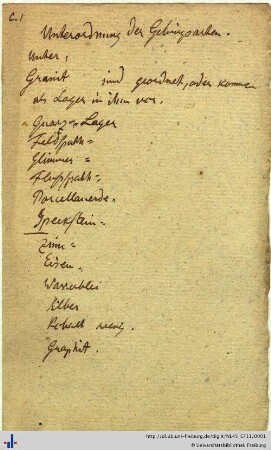 C. 1
Unterordnung der Gebirgsarten.
Unter:
Granit sind geordnet, oder kommen
als Lager in ihm vor.
Quarz=Lager
Feldspath=
Glimmer=
Flußspath=
Porcellanerde=
Speckstein=
Zinn=
Eisen=
Wasserblei
Silber
Kobalt wenig.
Graphit.
http://dl.ub.uni-freiburg.de/diglit/NL45_E711/0001
© Universitätsbibliothek Freiburg